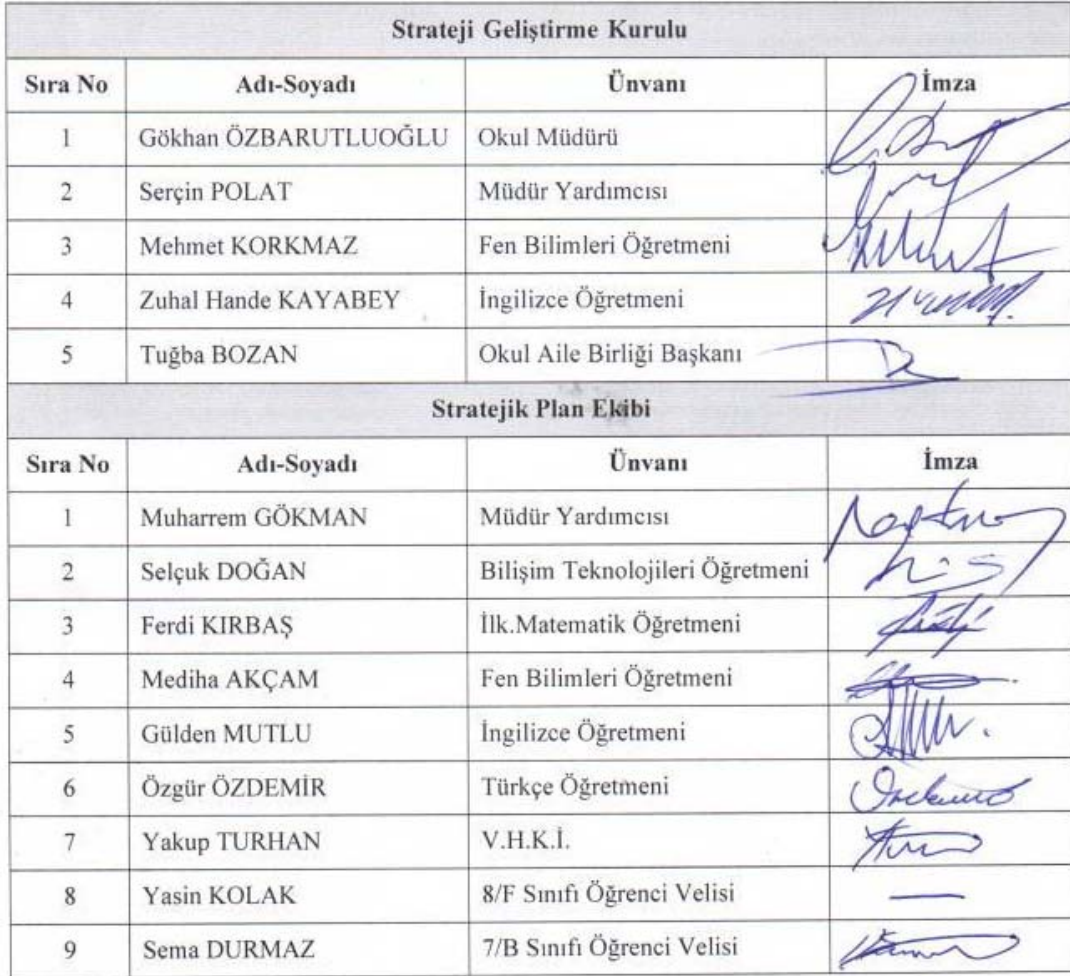 Strateji Geliştirme Kurulu
Sıra No Adı-Soyadı Ünvanı İmza
1 Gökhan ÖZBARUTLUOĞLU Okul Müdürü
2 Serçin POLAT Müdür Yardımcısı
3 Mehmet KORKMAZ Fen Bilimleri Öğretmeni
4 Zuhal Hande KAYABEY İngilizce Öğretmeni
5 Tuğba BOZAN Okul Aile Birliği Başkanı
Stratejik Plan Ekibi
Sıra No Adı-Soyadı Ünvanı İmza
1 Muharrem GÖKMAN Müdür Yardımcısı
2 Selçuk DOĞAN Bilişim Teknolojileri Öğretmeni
3 Ferdi KIRBAŞ İlk.Matematik Öğretmeni
4 Mediha AKÇAM Fen Bilimleri Öğretmeni
5 Gülden MUTLU İngilizce Öğretmeni
6 Özgür ÖZDEMİR Türkçe Öğretmeni
7 Yakup TURHAN V.H.K.İ.
8 Yasin KOLAK 8/F Sınıfı Öğrenci Velisi
9 Sema DURMAZ 7/B Sınıfı Öğrenci Velisi